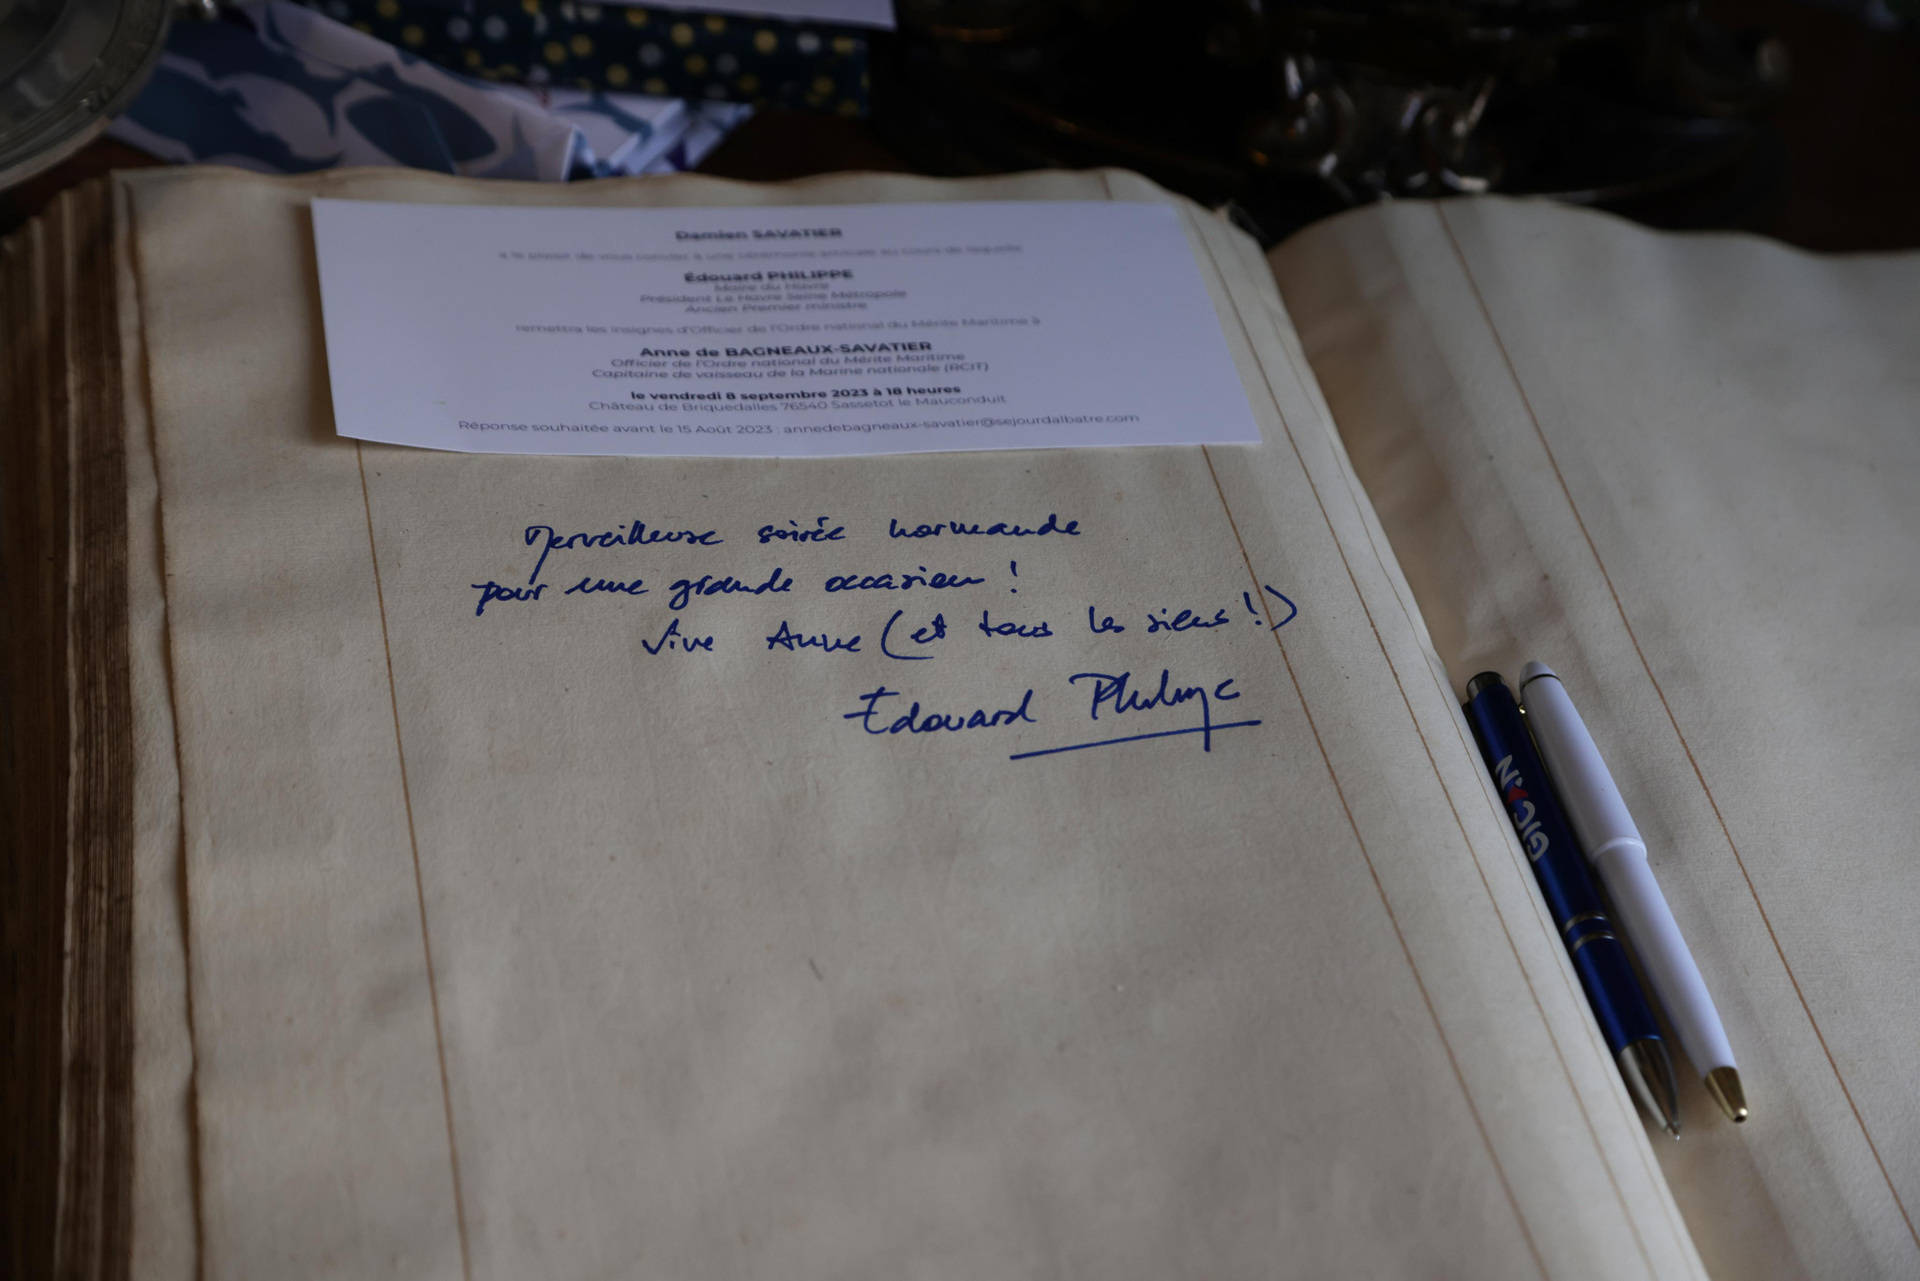 Damien SAVATIER
a le plaisir de vous convier à une cérémonie amicale au cours de laquelle
Édouard PHILIPPE
Maire du Havre
Président Le Havre Seine Métropole
Ancien Premier ministre
remettra les insignes d'Officier de l'Ordre national du Mérite Maritime à
Anne de BAGNEAUX-SAVATIER
Officier de l'Ordre national du Mérite Maritime
Capitaine de vaisseau de la Marine nationale (RCIT)
le vendredi 8 septembre 2023 à 18 heures
Château de Briquedalles 76540 Sassetot le Mauconduit
Réponse souhaitée avant le 15 Août 2023 : annedebagneaux-savatier@sejourdalbatre.com
Merveilleuse soirée normande
pour une grande occasion !
Vive Anne (et tous les siens !)
Edouard Philippe
GICAN